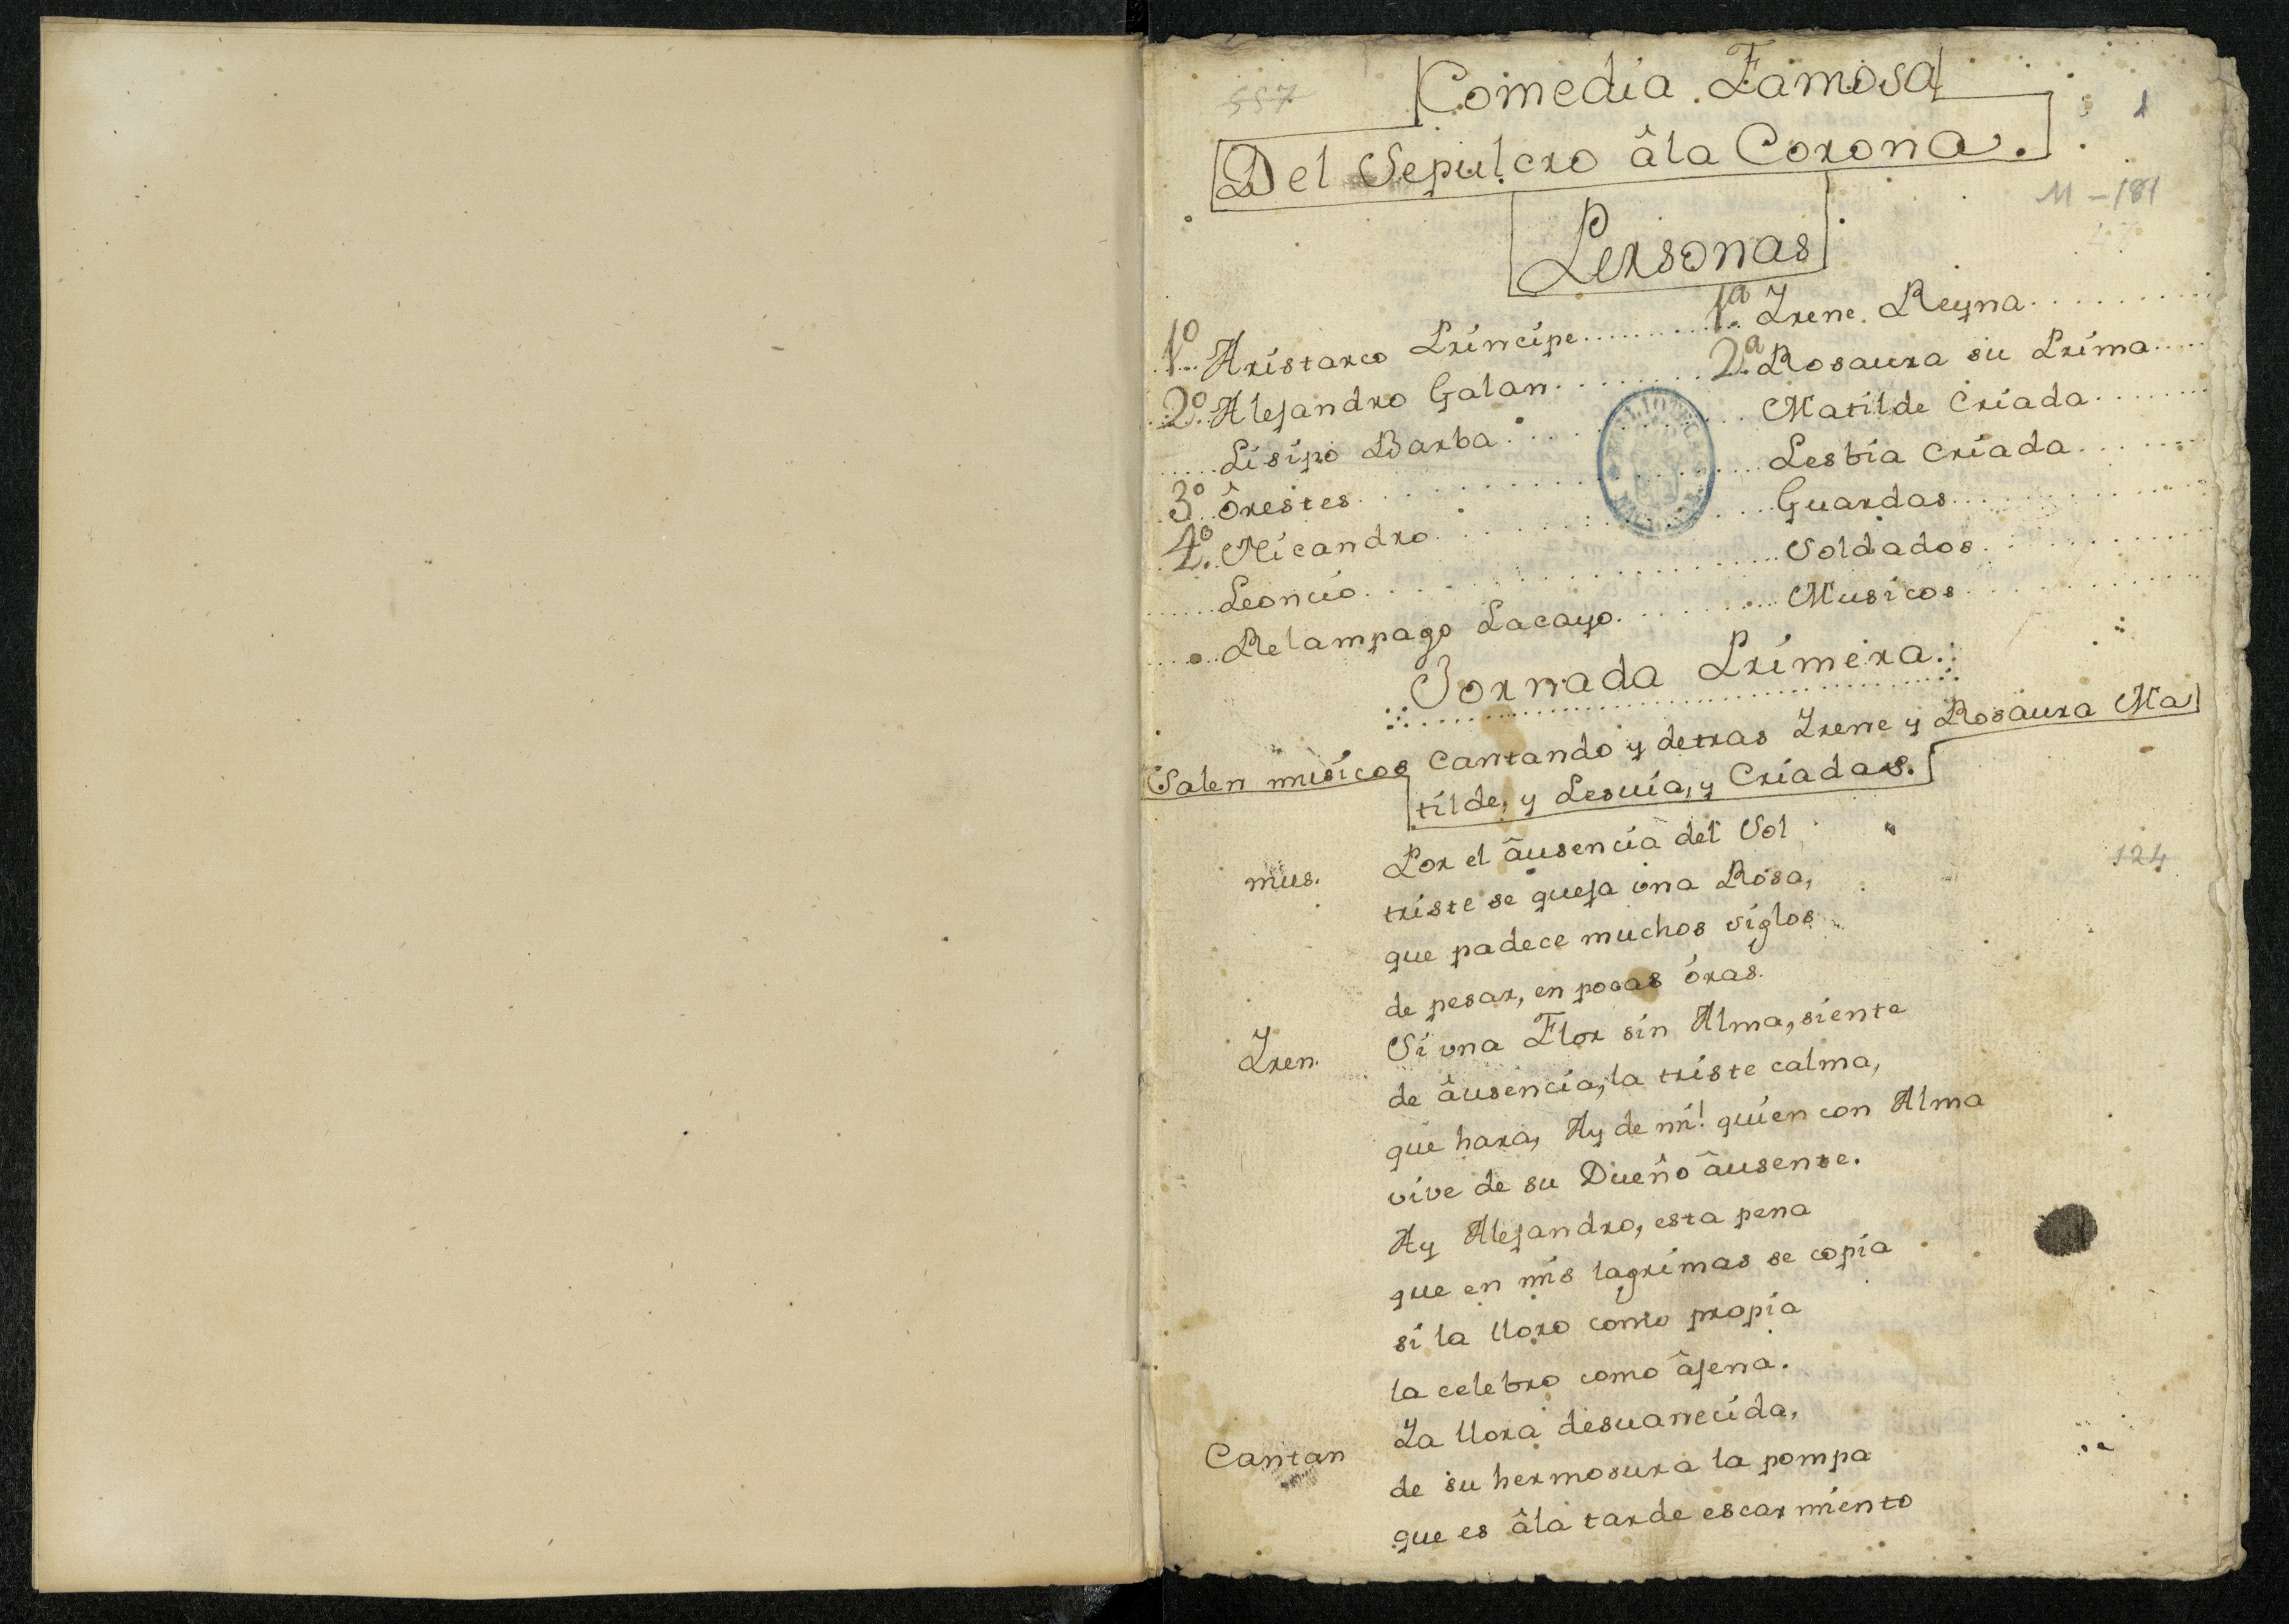 557
Comedia Famosa
1
Del Sepulcro âla Corona.
M-181
Personas
1º Aristarco Principe 1ª Irene Reyna
2º Alejandro Galan 2ª Rosaura su Prima
Lisipo Barba Matilde Criada
3º ôrestes Lesbia Criada
4º Nicandro Guardas
Leoncio Soldados
Relampago Lacayo Musicos
Jornada Primera.
Salen musicos Cantando y detras Irene y Rosaura Ma
tilde, y Lesuia, y Criadas.
mus. Por el âusencia del Sol
triste se queja una Rosa,
124
que padece muchos siglos
de pesar, en pocas óras.
Iren. Si una Flor sin Alma, siente
de âusencia, la triste calma,
que hara, Ay de mi! quien con Alma
vive de su Dueño âusente.
Ay Alejandro, esta pena
que en mis lagrimas se copia
si la lloro como propia
la celebro como âjena.
Cantan Ya llora desuanecida,
de su hermosura la pompa
que es âla tarde escarmiento